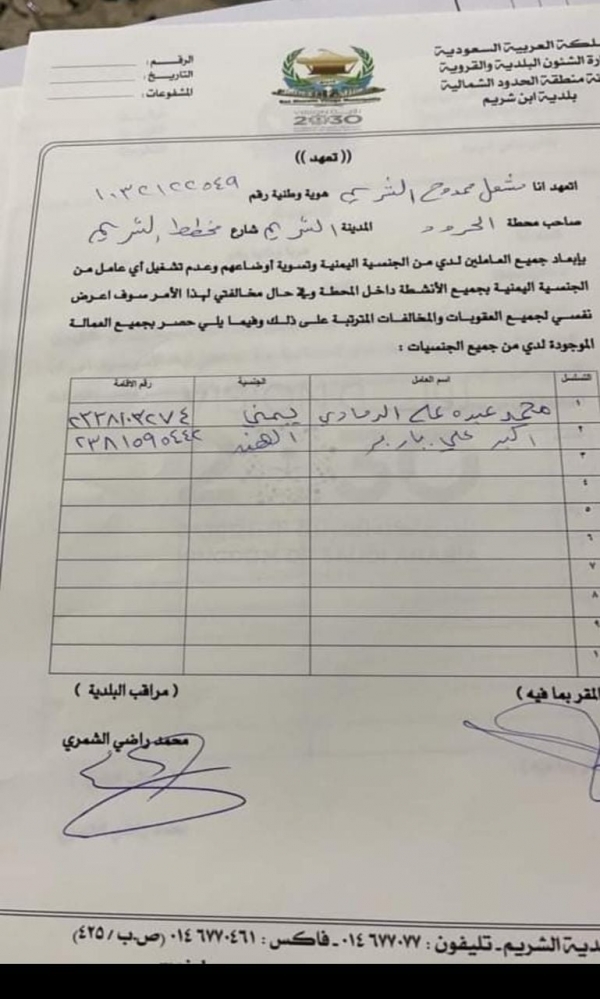 المملكة العربية السعودية
وزارة الشئون البلدية والقروية
أمانة منطقة الحدود الشمالية
بلدية ابن شريم
الرقم :
التاريخ :
المشفوعات :
VISION
2030
(( تعهد ))
اتعهد انا مشعل ممدوح الشريم هوية وطنية رقم ١٠٣٢١٢٢٥٤٩
صاحب محطة الحدود المدينة الشريم شارع مخطط الشريم
بإبعاد جميع العاملين لدي من الجنسية اليمنية وتسوية أوضاعهم وعدم تشغيل أي عامل من
الجنسية اليمنية بجميع الأنشطة داخل المحطة وفي حال مخالفتي لهذا الأمر سوف اعرض
نفسي لجميع العقوبات والمخالفات المترتبة على ذلك وفيما يلي حصر بجميع العمالة
الموجودة لدي من جميع الجنسيات :
التسلسل اسم العامل الجنسية رقم الاقامة
١ محمد عبده علي يمني ٢٣٣٨١٠٣٢٧٤
٢ اكبر علي بابر الهند ٢٣٨١٥٩٥٤٤٢
٣
٤
٥
٦
٧
٨
٩
١
المقر بما فيه )
( مراقب البلدية )
محمد راضي الشمري
بلدية الشريم - تليفون : ٠١٤ ٦٧٧٠٧٧ - فاكس : ٠١٤ ٦٧٧٠٤٦١ (ص.ب / ٤٢٥)